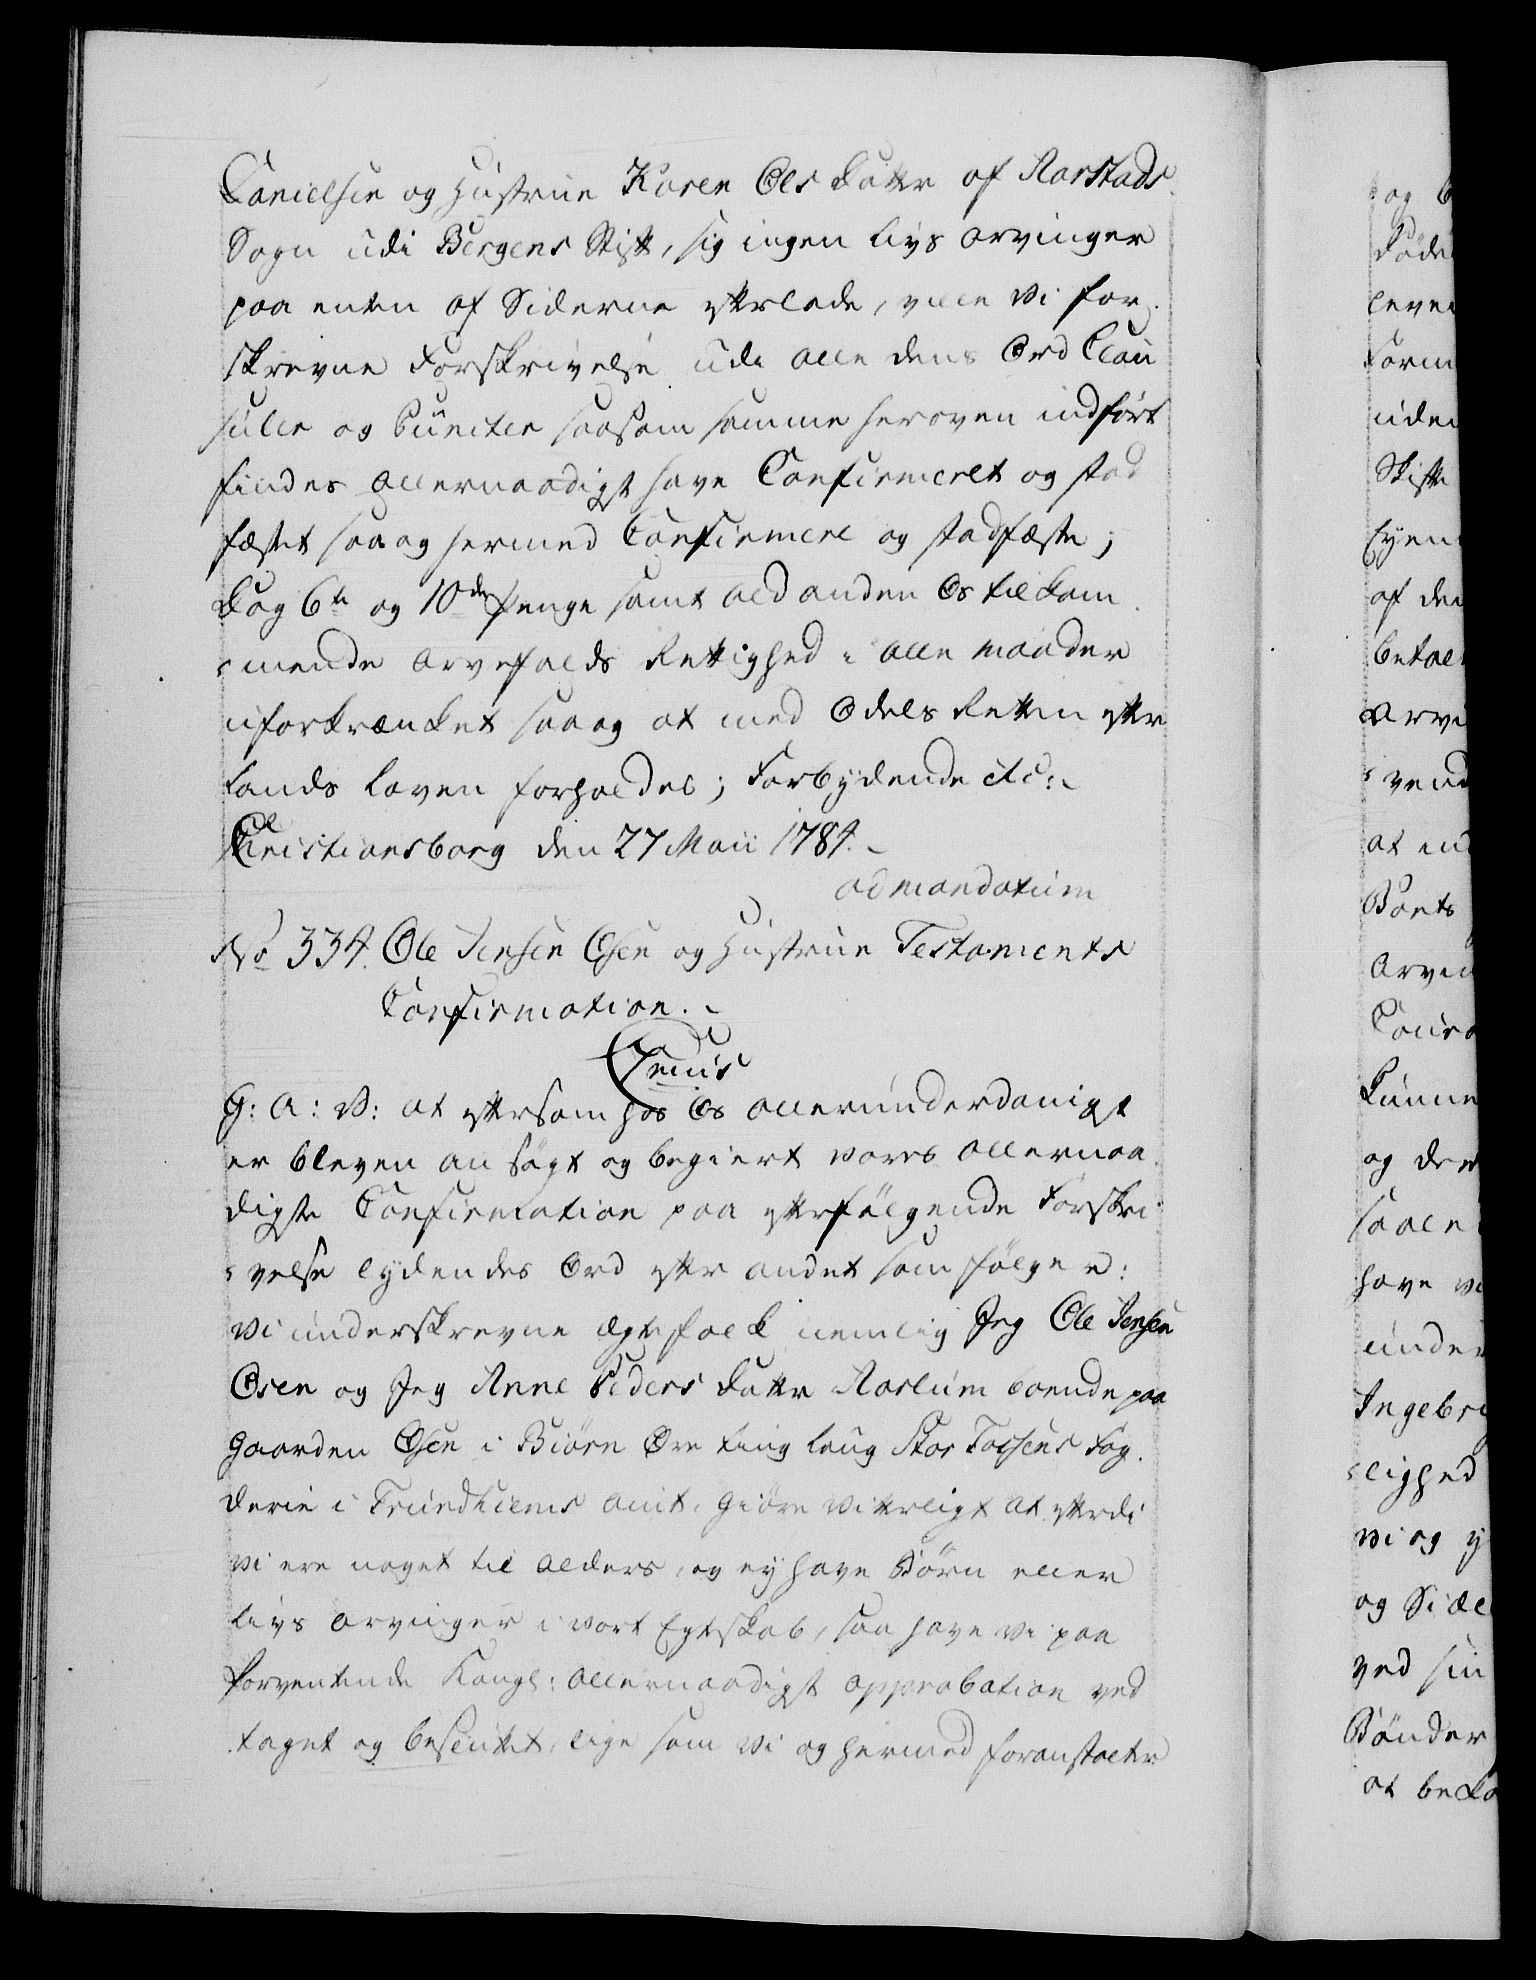 Danielsen og Hustrue Karen Ols datter af Aarstads
Sogn udi Bergens Stift, sig ingen livs arvinger
paa enten af Siderne efterlade, ville Vi for
skrevne Forskrivelse udi alle dens Ord Clau
suler og Puncter saasom samme heroven indført
findes allernaadigst have Confirmeret og stad
fæstet saa og hermed Confirmere og stadfæste;
Dog 6te og 10de Penge samt ald anden Os tilkom
mende Arvefalds Rettighed i alle maader
uforkrænket saa og at med Odels Retten efter
Lands Loven forholdes; Forbydende etc:
Christiansborg den 27 Maii 1784.
ad mandatum
No 334. Ole Jensen Osen og Hustrue Testaments
Confirmation.
Genus
G: A: V: at eftersom hos Os allerunderdanigst
er bleven an søgt og begiert vores allernaa
digste Confirmation paa efterfølgende Forskri
velse lydendes Ord efter andet som følger:
Vi underskrevne Ægtefolk nemlig Jeg Ole Jensen
Osen og Jeg Anne Peders datter Aarlum boende paa
Gaarden Osen i Biørn Øre ting laug Stor Fossens Fog
derie i Trundhiems Amt, giøre vitterligt at efterdi
vi ere noget til alders, og ey have Børn eller
livs arvinger i vort Egteskab, saa have vi paa
forventende Kongl: allernaadigst approbation ved
taget og besluttet, lige som vi og hermed foranstalter